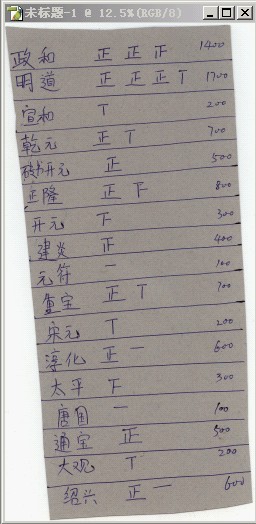 未标题-1 @ 12.5%(RGB/8)
政和 正 正 正 1400
明道 正 正 正 T 1700
宣和 T 200
乾元 正 T 700
开元 正 500
正隆 正 下 800
开元 下 300
建炎 正 400
元符 一 100
重宝 正 T 700
宋元 T 200
淳化 正 一 600
太平 下 300
唐国 一 100
通宝 正 500
大观 T 200
绍兴 正 一 600